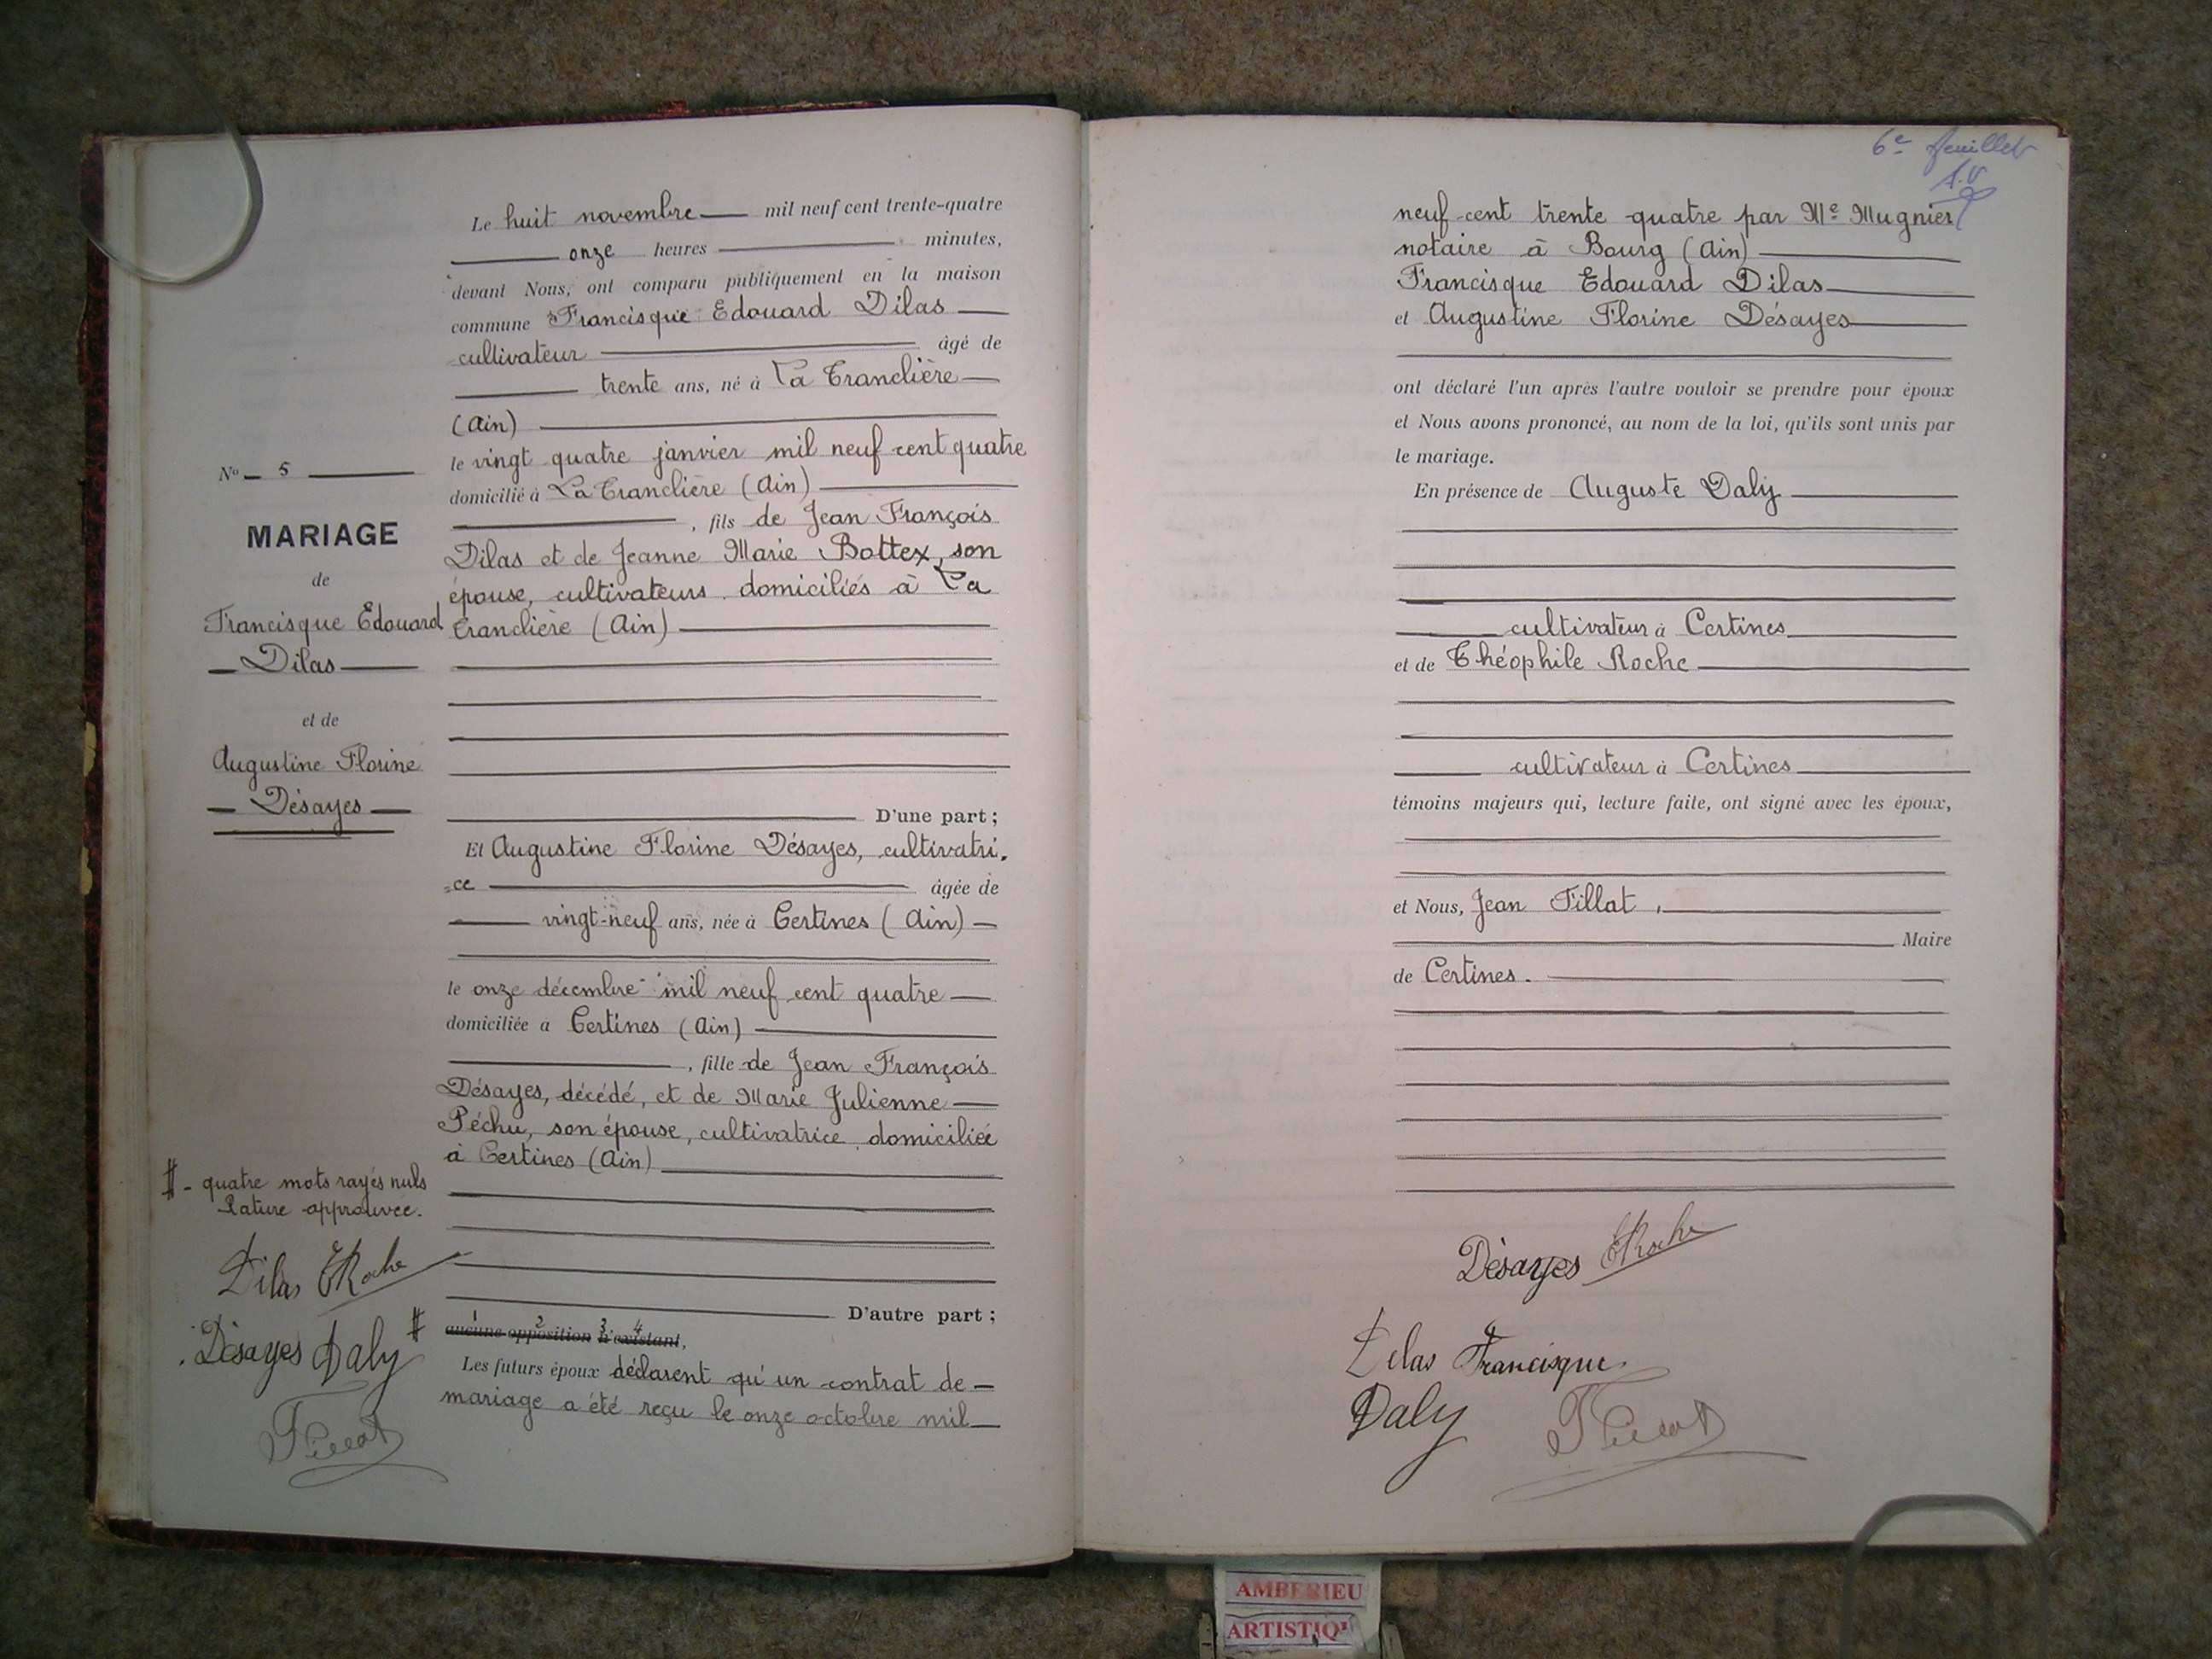 Le huit novembre mil neuf cent trente-quatre
onze heures minutes,
devant Nous, ont comparu publiquement en la maison
commune Francisque Edouard Dilas
cultivateur âgé de
trente ans, né à La Tranclière
(Ain)
le vingt quatre janvier mil neuf cent quatre
domicilié à La Tranclière (Ain)
, fils de Jean François
Dilas et de Jeanne Marie Bottex, son
épouse, cultivateurs domiciliés à La
Tranclière (Ain)
D'une part ;
Et Augustine Florine Désayes, cultivatri.
=ce âgée de
vingt-neuf ans, née à Certines (Ain)
le onze décembre mil neuf cent quatre
domiciliée à Certines (Ain)
, fille de Jean François
Désayes, décédé, et de Marie Julienne
Péchu, son épouse, cultivatrice domiciliée
à Certines (Ain)
D'autre part ;
1 2 3 4
# aucune opposition n'existant,
Les futurs époux déclarent qu'un contrat de
mariage a été reçu le onze octobre mil
No 5
MARIAGE
de
Francisque Edouard
Dilas
et de
Augustine Florine
Désayes
# - quatre mots rayés nuls
Rature approuvée.
Dilas TRoche
Désayes Daly
Tillat
6e feuillet
neuf cent trente quatre par Me Mugnier
notaire à Bourg (Ain)
Francisque Edouard Dilas
et Augustine Florine Désayes
ont déclaré l'un après l'autre vouloir se prendre pour époux
et Nous avons prononcé, au nom de la loi, qu'ils sont unis par
le mariage.
En présence de Auguste Daly
cultivateur à Certines
et de Théophile Roche
cultivateur à Certines
témoins majeurs qui, lecture faite, ont signé avec les époux,
et Nous, Jean Tillat,
Maire
de Certines.
Désayes TRoche
Dilas Francisque
Daly Tillat
AMBERIEU
ARTISTIQ